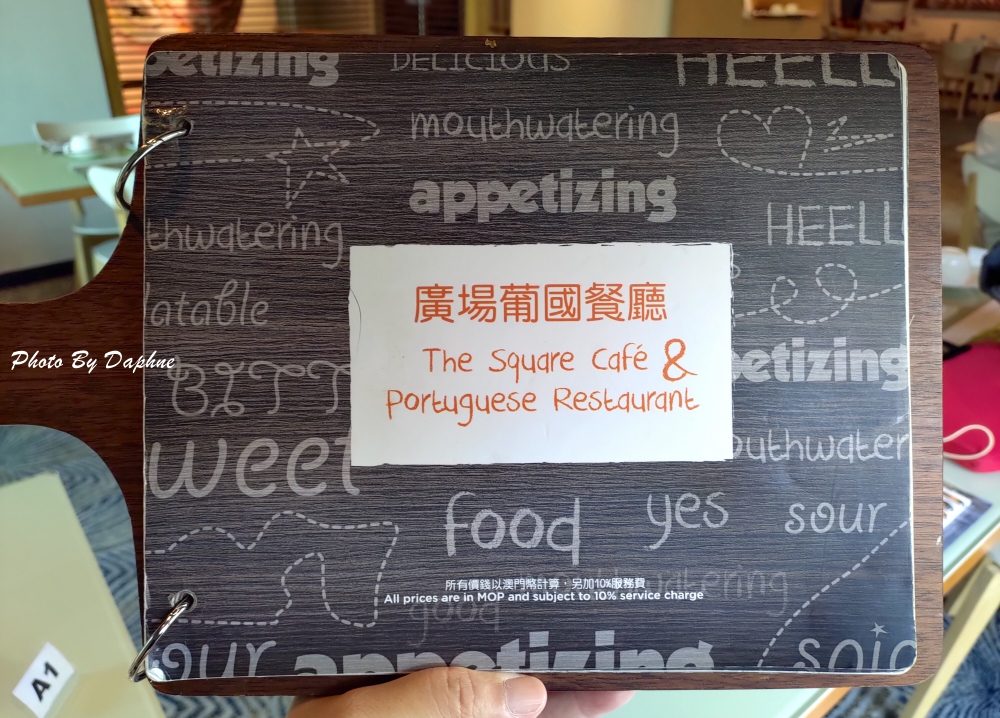 petizing
DELICIOUS
HEELL
mouthwatering
appetizing
thwatering
HEELL
latable
廣場葡國餐廳
The Square Café &
Portuguese Restaurant
Photo By Daphne
petizing
BITT
weet
outhwater
food
yes
sour
所有價錢以澳門幣計算，另加10%服務費
All prices are in MOP and subject to 10% service charge
watering
good
our
appetizing
A1